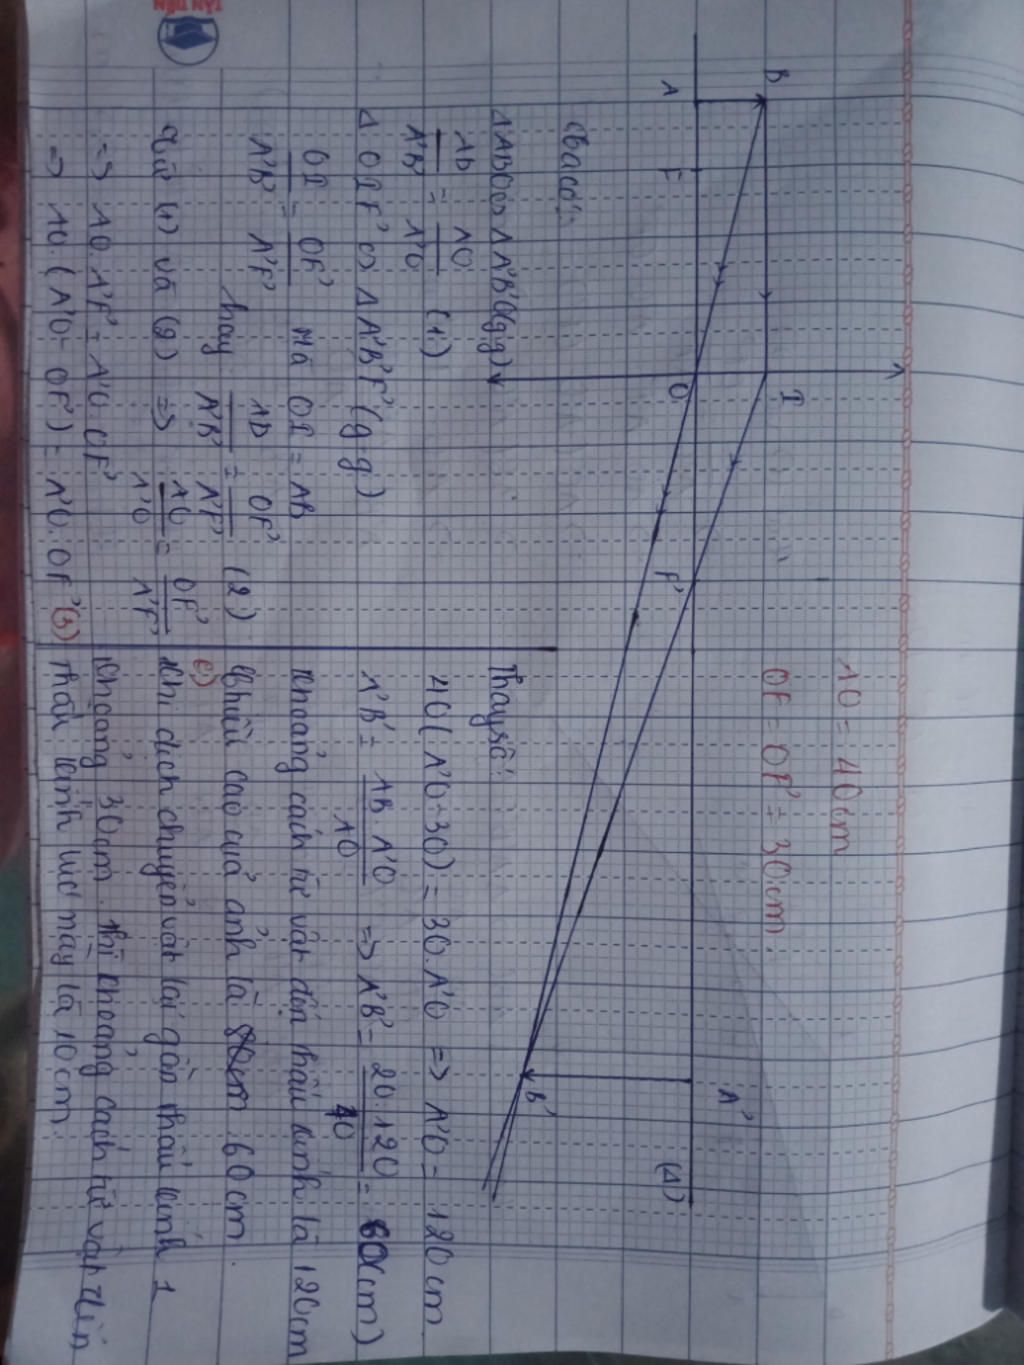 AO = 40cm
OF = OF' = 30cm.
B
I
A
F
O
F'
A'
(Δ)
B'
Ta có:
ΔABO ∽ ΔA'B'O (g.g)
AB/A'B' = AO/A'O (1)
ΔOIF' ∽ ΔA'B'F' (g.g)
OI/A'B' = OF'/A'F' Mà OI = AB
hay AB/A'B' = OF'/A'F' (2)
Từ (1) và (2) => AO/A'O = OF'/A'F'
=> AO.A'F' = A'O.OF'
=> AO.(A'O - OF') = A'O.OF' (3)
Thay số:
40(A'O-30) = 30.A'O => A'O = 120cm.
A'B' = AB.A'O/AO => A'B' = 20.120/40 = 60(cm)
Khoảng cách từ vật đến thấu kính là 120cm
Chiều cao của ảnh là 60cm.
c) Khi dịch chuyển vật lại gần thấu kính 1
khoảng 30cm. thì khoảng cách từ vật đến
thấu kính lúc này là 10cm.
TÂN TIẾN